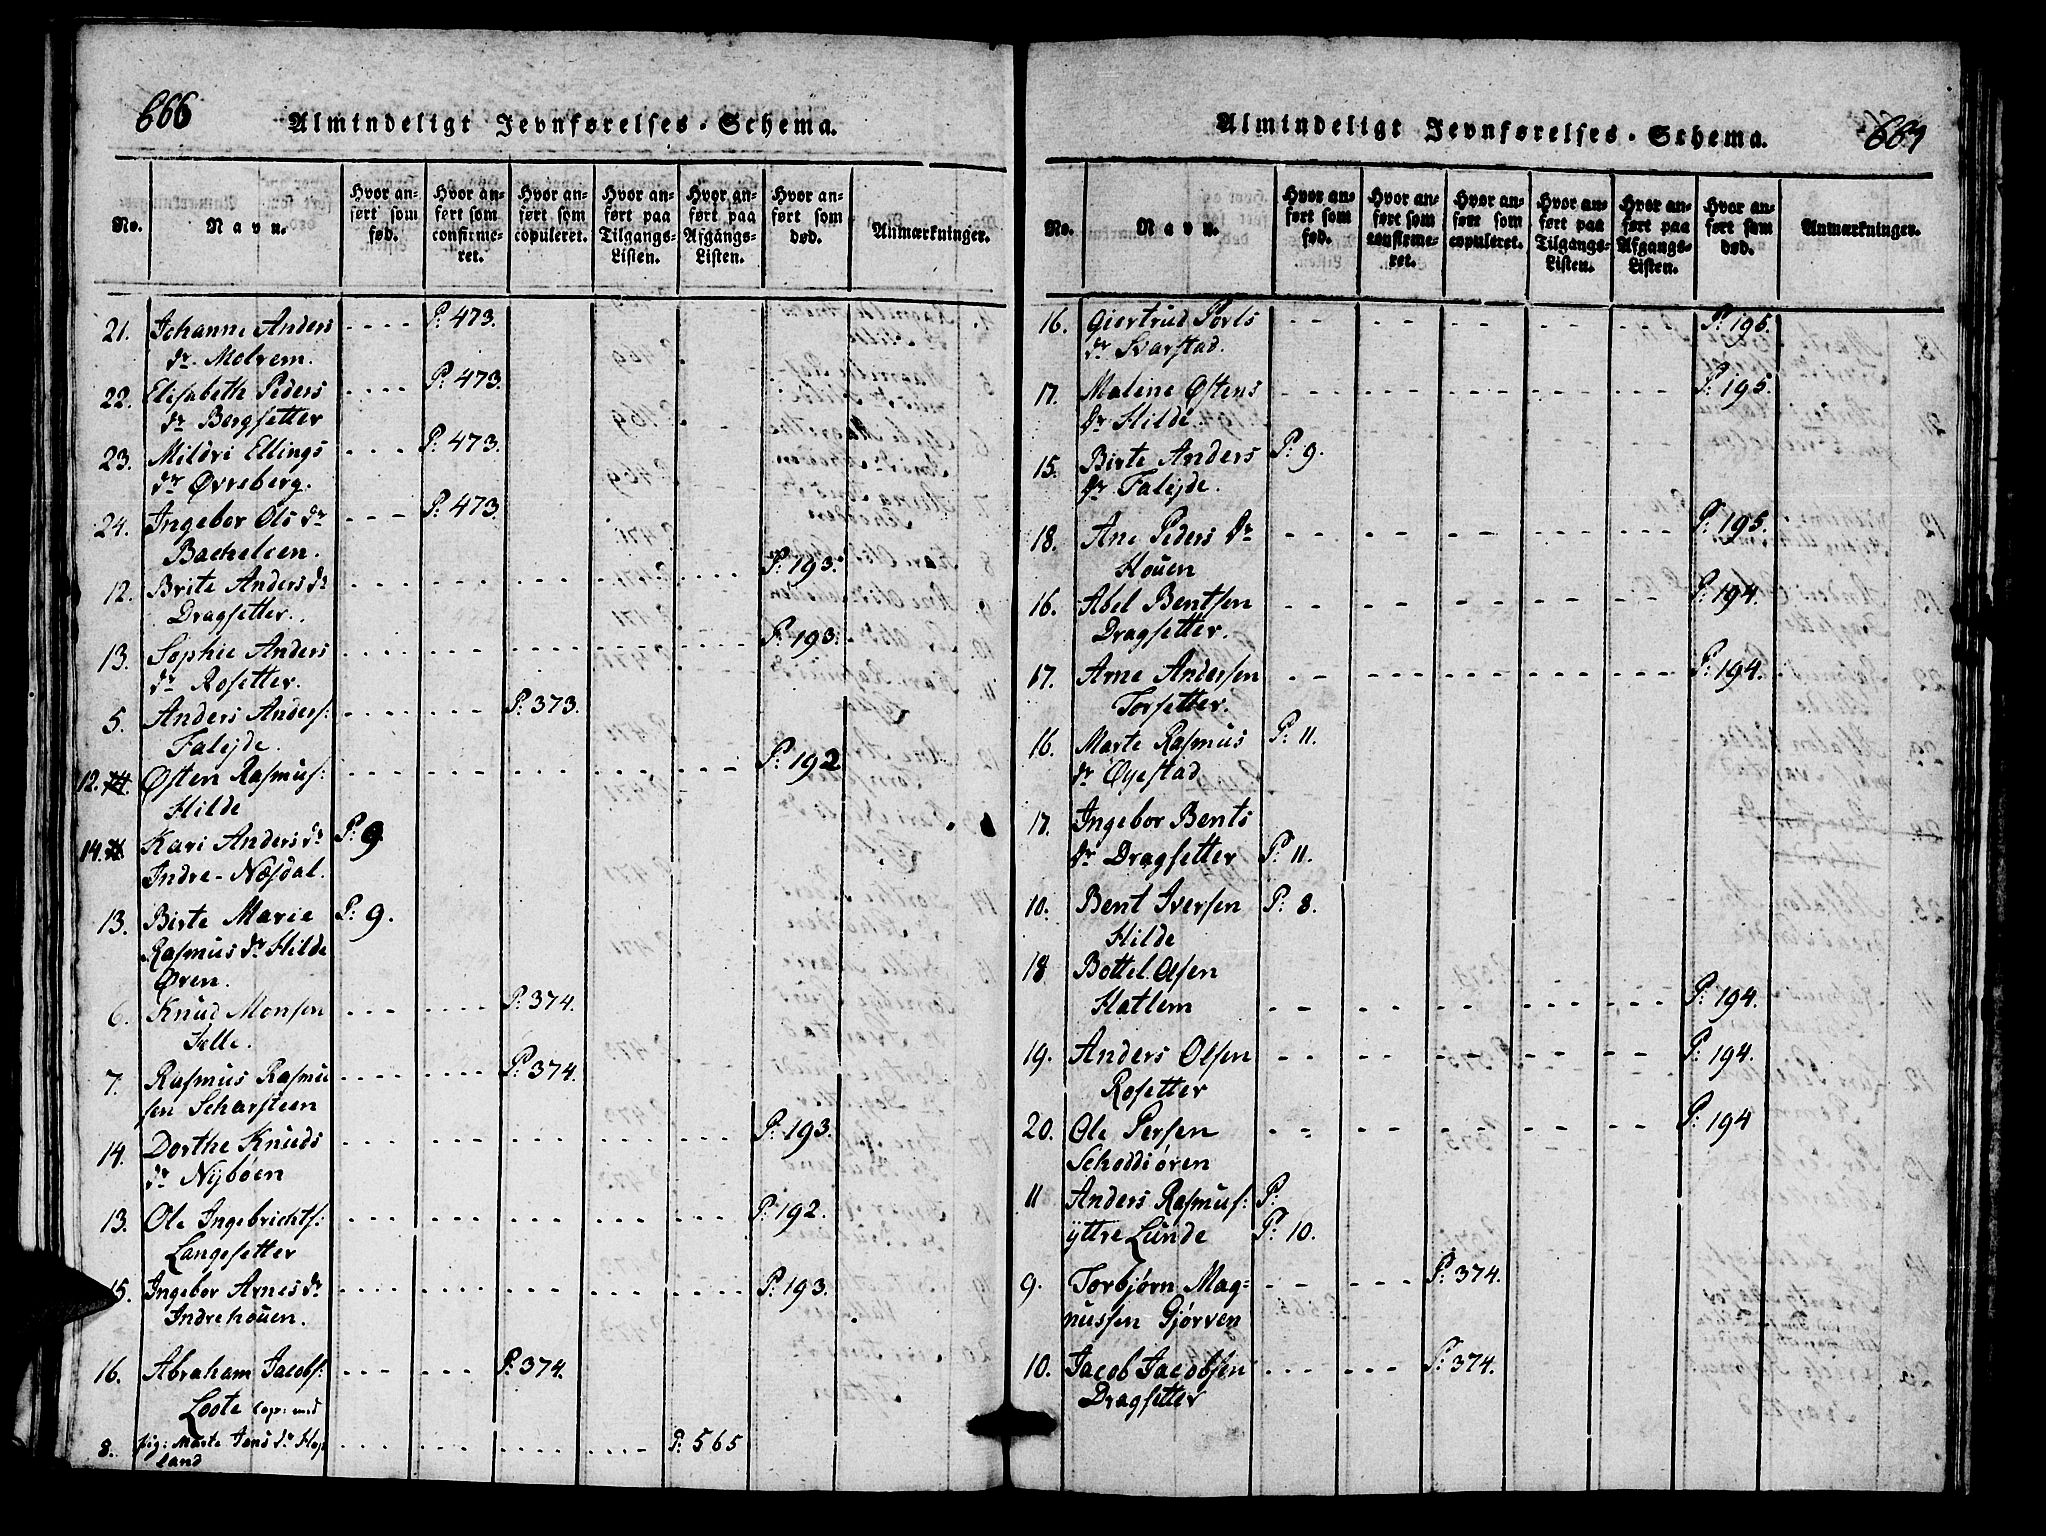 666
Almindeligt Jevnførelses-Schema.
No.
Navn.
Hvor anført som fød.
Hvor anført som confirmeret.
Hvor anført som copuleret.
Hvor anført paa Tilgangs-Listen.
Hvor anført paa Afgangs-Listen.
Hvor anført som død.
Anmærkninger.
21. Johanne Anders P: 473.
dr. Melvem.
22. Elisabeth Peders P: 473.
dr Bergsetter
23. Mildri Ellings P: 473.
dr Øvreberg.
24. Ingebor Ols dr P: 473.
Bacheleen.
12. Brite Anders dr P: 193.
Dragsetter.
13. Sophie Anders P: 193.
dr Rosetter.
5. Anders Anders: P: 373.
Falejde.
12. Østen Rasmus: P: 192
Hilde
14. Kari Anders dr P: 9
Indre-Næsdal.
13. Birte Marie P: 9.
Rasmus dr Hilde
Øren.
6. Knud Monsen P: 374.
Felle.
7. Rasmus Rasmu P: 374.
sen Scharsteen
14. Dorthe Knuds P: 193.
dr Nijböen
13. Ole Ingebrichts: P: 192.
Langesetter
15. Ingebor Arnes dr P: 193.
Indrehouen.
16. Abraham Jacobs: P: 374.
Loote cop: med
8. pig: Marte Jens dr Hop P: 565
land
Almindeligt Jevnførelses-Schema.
667
No.
Navn.
Hvor anført som fød.
Hvor anført som confirmeret.
Hvor anført som copuleret.
Hvor anført paa Tilgangs-Listen.
Hvor anført paa Afgangs-Listen.
Hvor anført som død.
Anmærkninger.
16. Giertrud Pouls P: 195.
dr Svarstad.
17. Malene Østens P: 195.
dr Hilde.
15. Birte Anders P: 9.
dr Falejde.
18. Ane Peders dr P: 195.
Houen
16. Abel Bentsen P: 194.
Dragsetter.
17. Arne Andersen P: 194.
Torsetter.
16. Marte Rasmus P: 11.
dr Øyestad
17. Ingebor Bents
dr Dragsetter P: 11.
10. Bent Iversen P: 8.
Hilde
18 Bottel Olsen
Hatlem P: 194.
19. Anders Olsen P: 194.
Rosetter
20. Ole Persen P: 194
Schoddiøren
11 Anders Rasmus: P:
yttre Lunde P: 10.
9. Torbjørn Mag= P: 374.
nussen Gjørven
10. Jacob Jacobsen P: 374.
Dragsetter